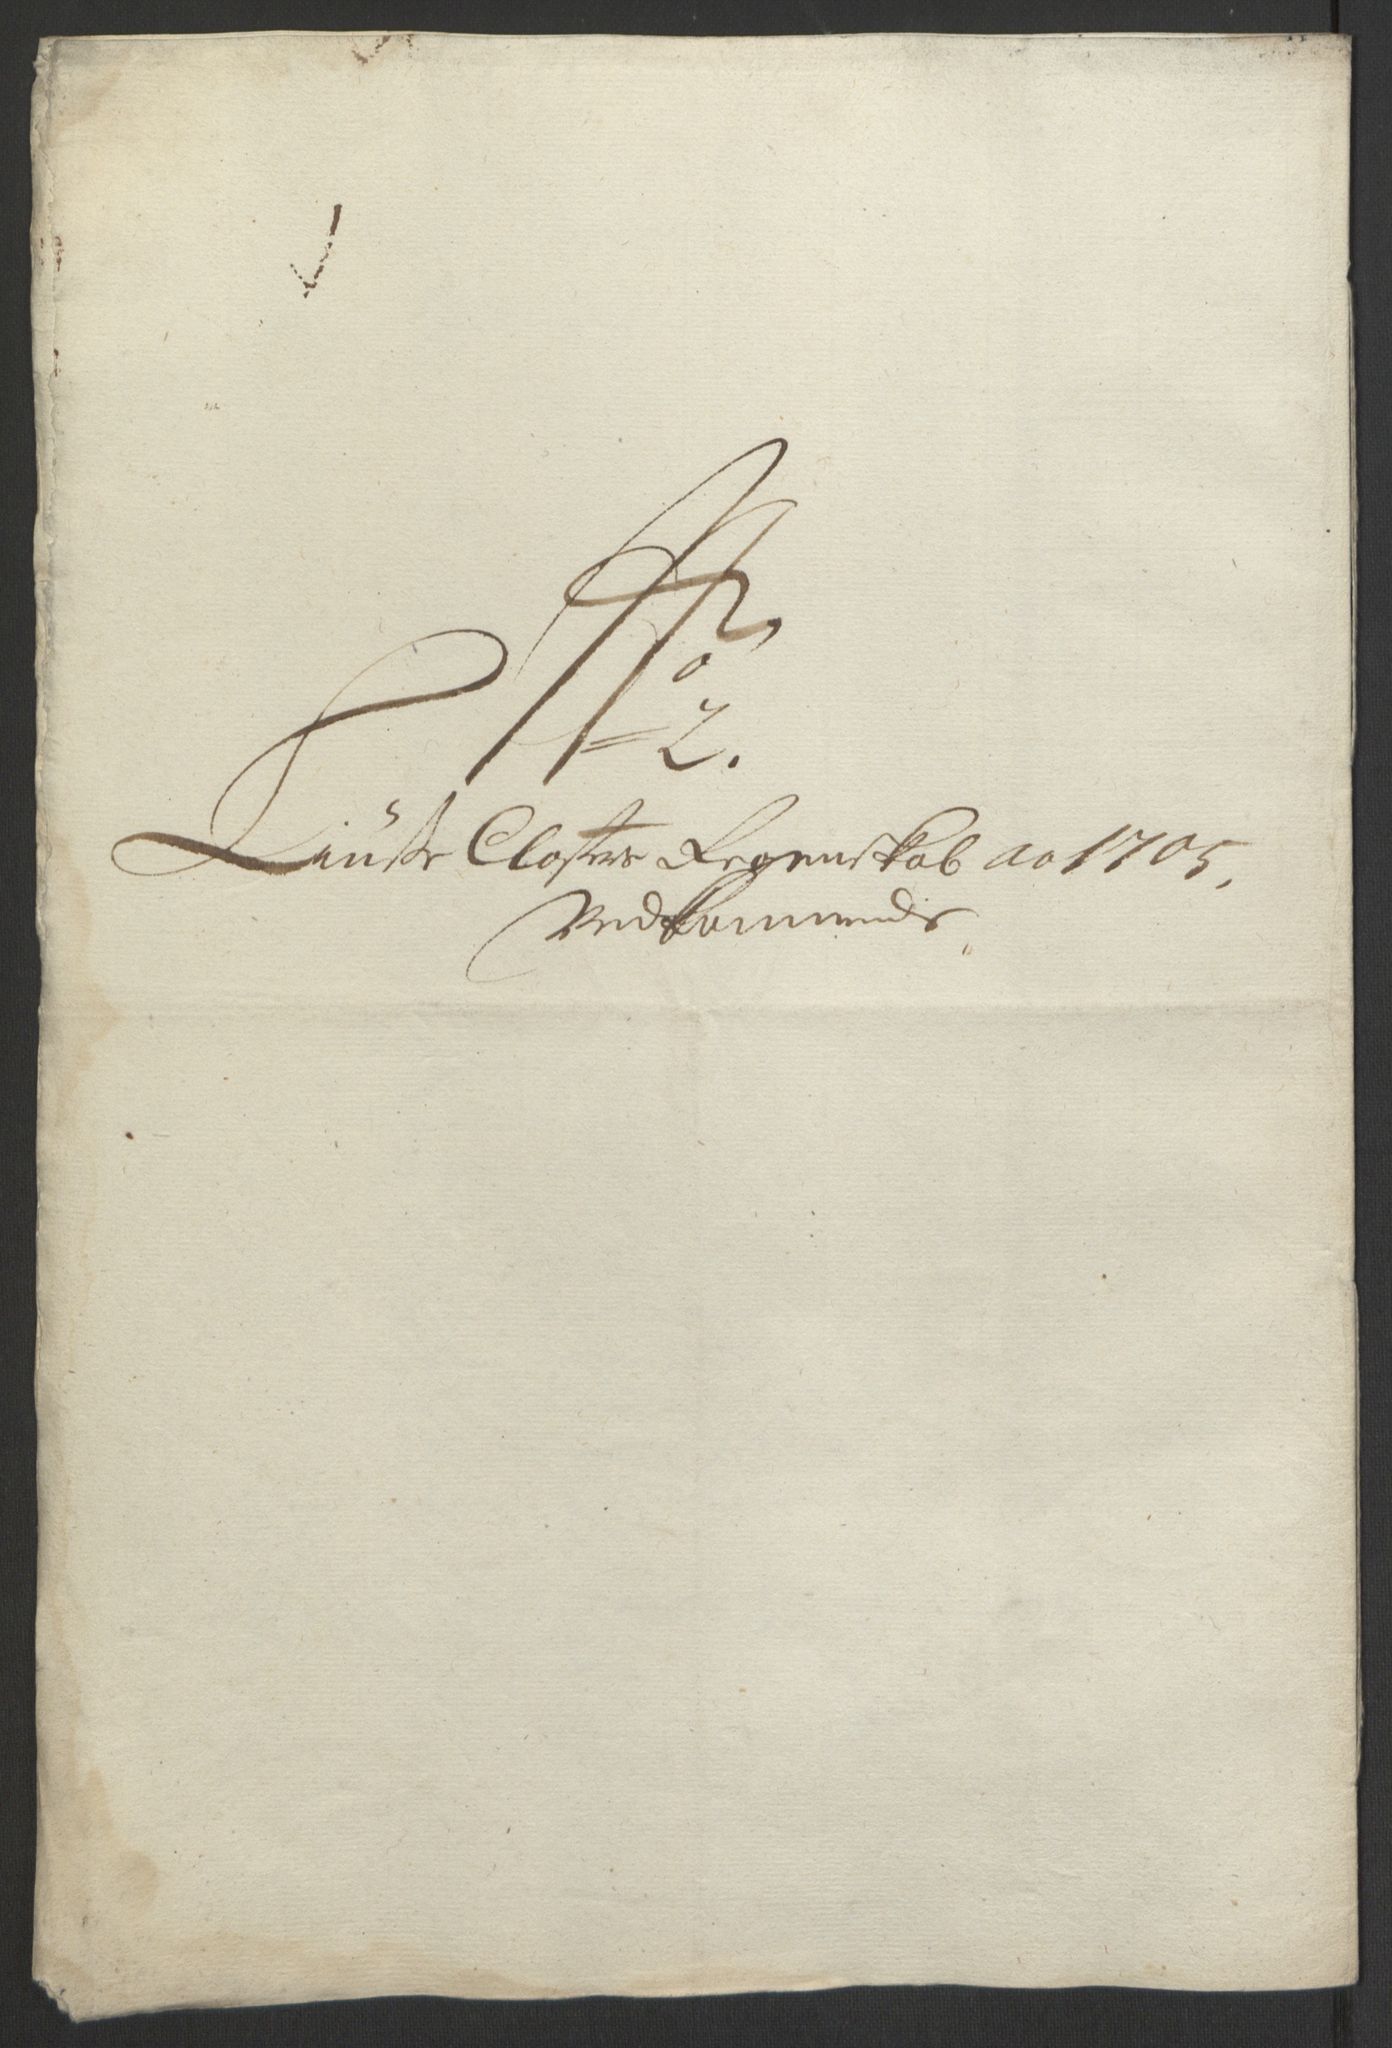 No
2.
Liuste Closters Regenskab ao 1705,
Vedkommende